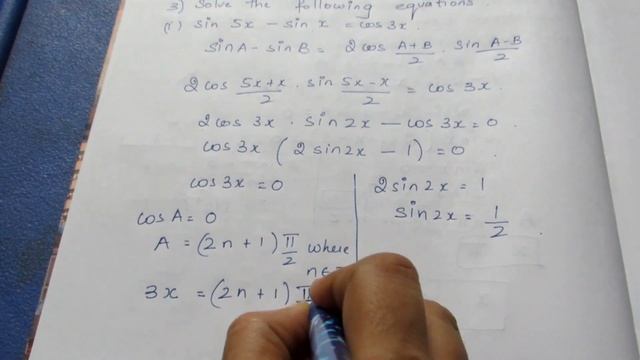 3) Solve the following equations.
(i) sin 5x – sin x = cos 3x.
sinA – sinB = 2 cos A+B/2 . sin A-B/2
2 cos 5x+x/2 . sin 5x-x/2 = cos 3x.
2 cos 3x . sin 2x – cos 3x = 0.
cos 3x (2 sin2x – 1) = 0.
cos 3x = 0
cos A = 0
A = (2n + 1) π/2 where
n ∈
3x = (2n + 1) π
2 sin 2x = 1
sin 2x = 1/2.